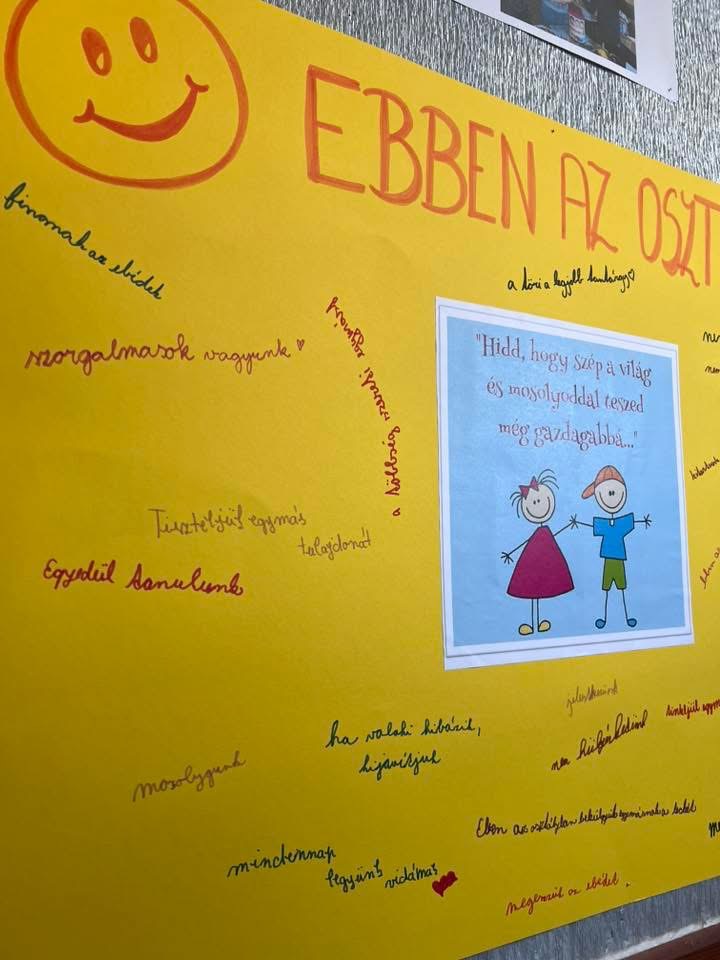 EBBEN AZ OSZT
finomak az ebédek
a töri a legjobb tantárgy♡
szorgalmasok vagyunk ♥
a többség szereti egymást
"Hidd, hogy szép a világ
és mosolyoddal teszed
még gazdagabbá..."
Tiszteljük egymás
tulajdonát
Egyedül tanulunk
jelentkezünk
ha valaki hibázik,
kijavítjuk
mosolygunk
Eben az osztályban
mindennap
legyünk vidámak
megesszük az ebédet.